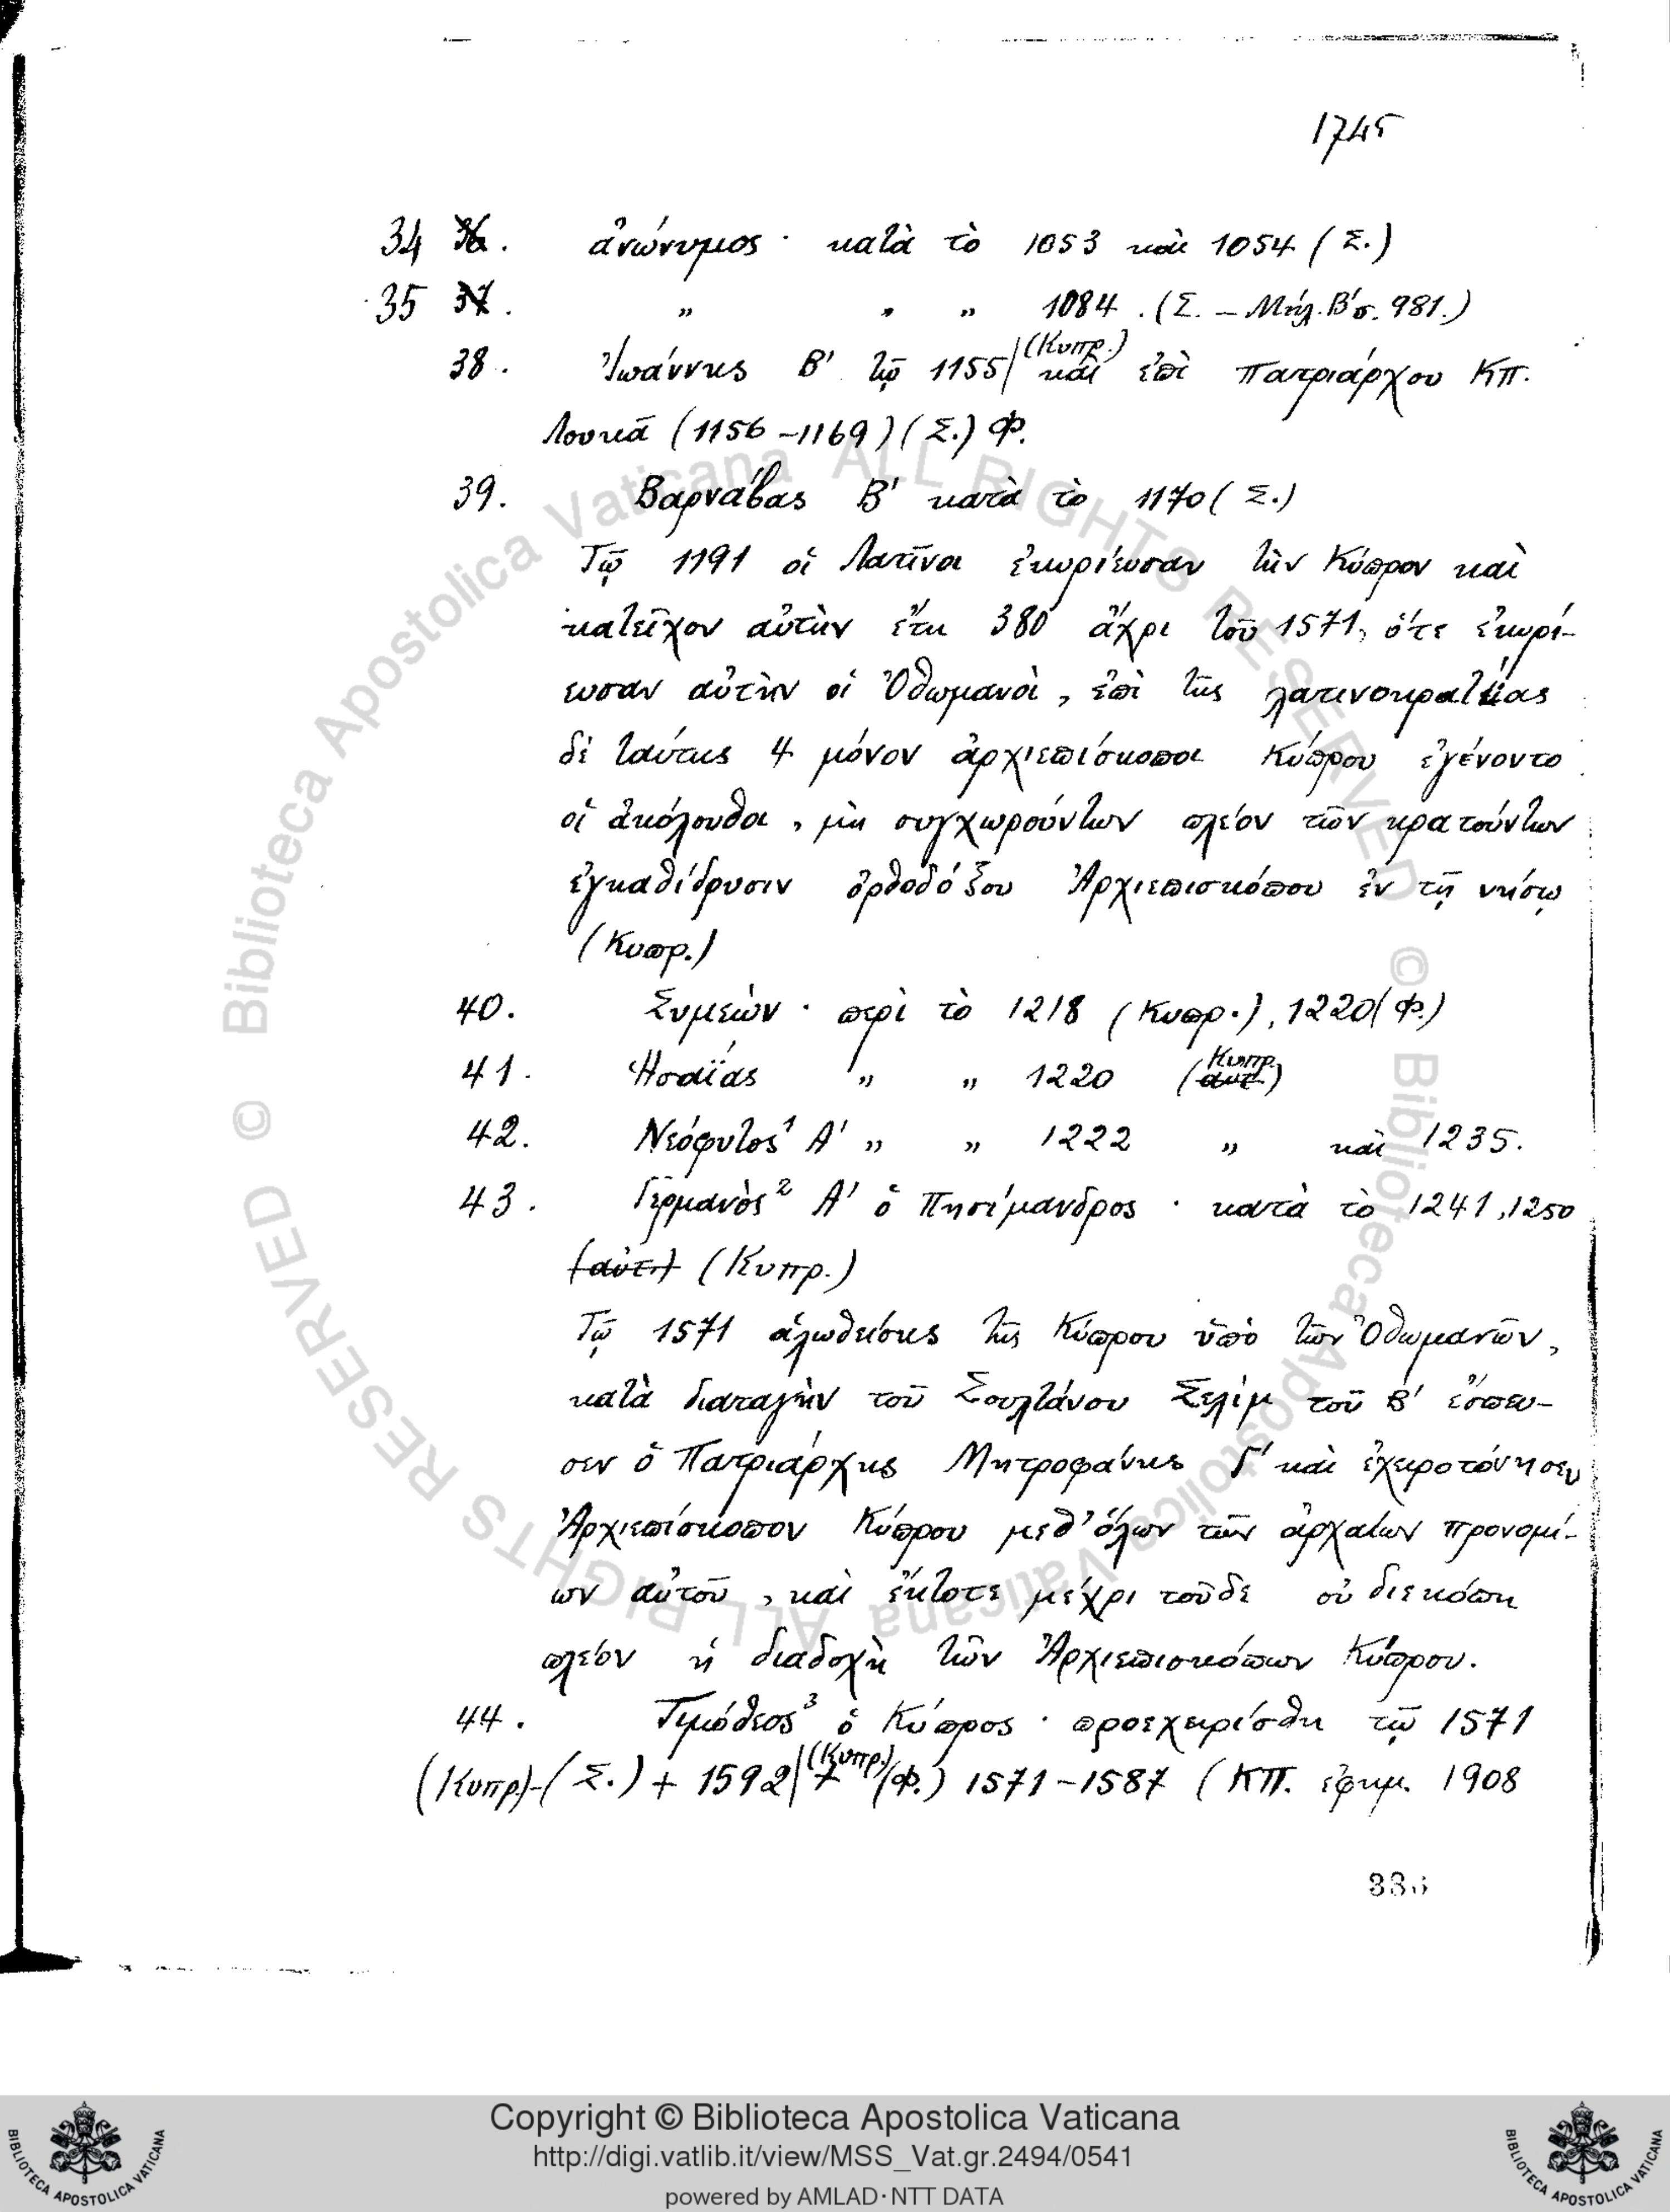 1745
34 36. ἀνώνυμος · κατὰ τὸ 1053 καὶ 1054 (Σ.)
35 37. „ „ „ 1084 . (Σ. – Μήλ. Β' σ. 981.)
38. Ἰωάννης Β' τῷ 1155 (Κυπρ.) καὶ ἐπὶ Πατριάρχου ΚΠ.
Λουκᾶ (1156 – 1169) (Σ.) Φ.
39. Βαρνάβας Β' κατὰ τὸ 1170 (Σ.)
Τῷ 1191 οἱ Λατῖνοι ἐκυρίευσαν τὴν Κύπρον καὶ
κατεῖχον αὐτὴν ἔτη 380 ἄχρι τοῦ 1571, ὅτε ἐκυρί-
ευσαν αὐτὴν οἱ Ὀθωμανοὶ, ἐπὶ τῆς λατινοκρατείας
δὲ ταύτης 4 μόνον ἀρχιεπίσκοποι Κύπρου ἐγένοντο
οἱ ἀκόλουθοι, μὴ συγχωρούντων πλέον τῶν κρατούντων
ἐγκαθίδρυσιν ὀρθοδόξου Ἀρχιεπισκόπου ἐν τῇ νήσῳ
(Κυπρ.)
40. Συμεὼν · περὶ τὸ 1218 (Κυπρ.), 1220 (Φ.)
41. Ἡσαΐας „ „ 1220 (αὐτ. Κυπρ.)
42. Νεόφυτος¹ Α' „ „ 1222 „ καὶ 1235.
43. Γερμανὸς² Α' ὁ Πησίμανδρος · κατὰ τὸ 1241, 1250
(αὐτ.) (Κυπρ.)
Τῷ 1571 ἁλωθείσης τῆς Κύπρου ὑπὸ τῶν Ὀθωμανῶν,
κατὰ διαταγὴν τοῦ Σουλτάνου Σελὶμ τοῦ Β' ἔσπευ-
σεν ὁ Πατριάρχης Μητροφάνης Γ' καὶ ἐχειροτόνησεν
Ἀρχιεπίσκοπον Κύπρου μεθ' ὅλων τῶν ἀρχαίων προνομί-
ων αὐτοῦ, καὶ ἔκτοτε μέχρι τοῦδε οὐ διεκόπη
πλέον ἡ διαδοχὴ τῶν Ἀρχιεπισκόπων Κύπρου.
44. Τιμόθεος³ ὁ Κύπρος · προεχειρίσθη τῷ 1571
(Κυπρ.)–(Σ.) + 1592 (Κυπρ.) 7 (Φ.) 1571–1587 (ΚΠ. ἐφημ. 1908
© Biblioteca Apostolica Vaticana ALL RIGHTS RESERVED © Biblioteca Apostolica Vaticana ALL RIGHTS RESERVED
Copyright © Biblioteca Apostolica Vaticana
http://digi.vatlib.it/view/MSS_Vat.gr.2494/0541
powered by AMLAD·NTT DATA
BIBLIOTECA APOSTOLICA VATICANA
BIBLIOTECA APOSTOLICA VATICANA